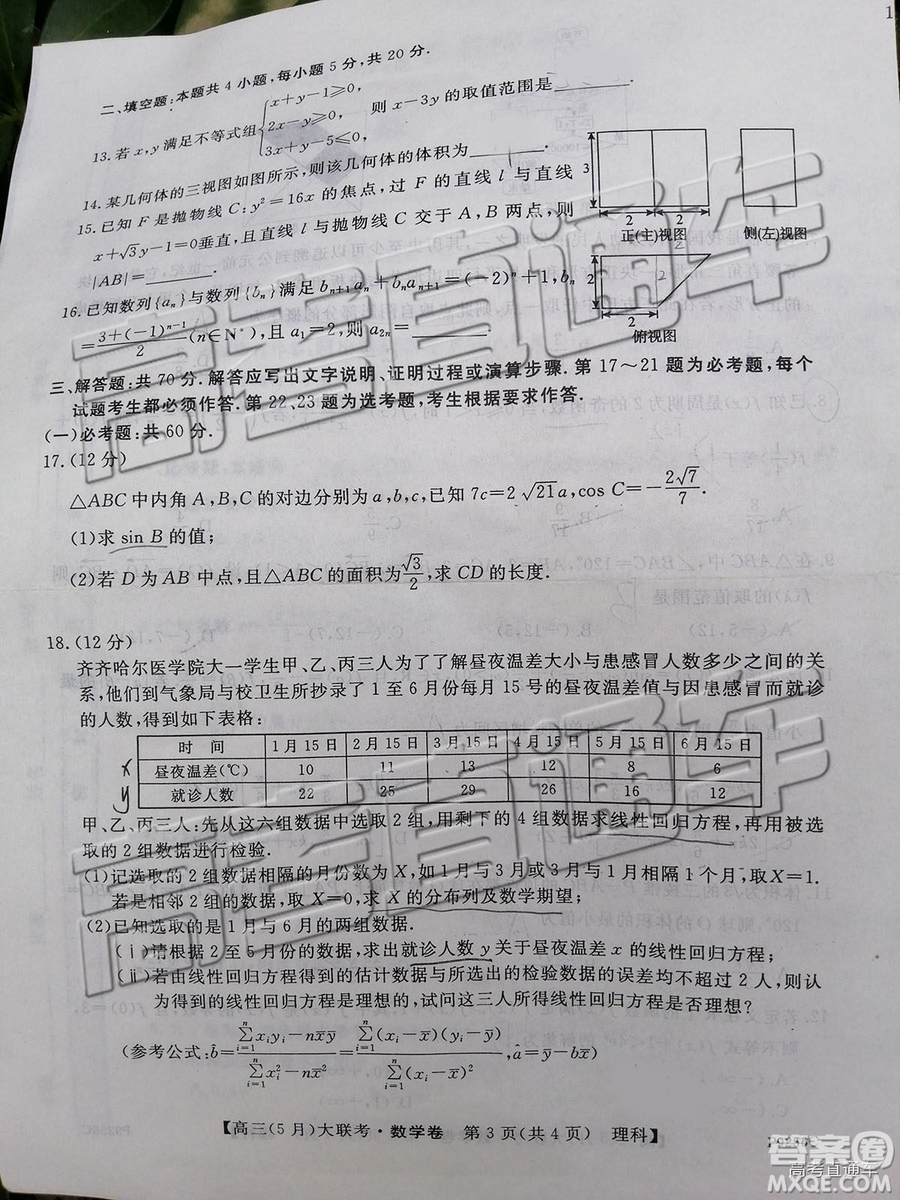 二、填空题:本题共 4 小题,每小题 5 分,共 20 分.
13. 若 x,y 满足不等式组{x+y-1⩾0, 2x-y⩾0, 3x+y-5⩽0, 则 x-3y 的取值范围是________.
14. 某几何体的三视图如图所示,则该几何体的体积为________.
15. 已知 F 是抛物线 C:y²=16x 的焦点,过 F 的直线 l 与直线
x+√3y-1=0垂直,且直线 l 与抛物线 C 交于 A,B 两点,则
|AB|=________.
16. 已知数列{aₙ}与数列{bₙ}满足 bₙ₊₁aₙ+bₙaₙ₊₁=(-2)ⁿ+1,bₙ
=(3+(-1)ⁿ⁻¹)/2(n∈N*),且 a₁=2,则 a₂ₙ=________.
3
2
2
正(主)视图
侧(左)视图
2
2
俯视图
三、解答题:共 70 分.解答应写出文字说明、证明过程或演算步骤.第 17~21 题为必考题,每个
试题考生都必须作答.第 22、23 题为选考题,考生根据要求作答.
(一)必考题:共 60 分.
17.(12 分)
△ABC 中内角 A,B,C 的对边分别为 a,b,c,已知 7c=2√21a,cos C=-2√7/7.
(1)求 sin B 的值;
(2)若 D 为 AB 中点,且△ABC 的面积为√3/2,求 CD 的长度.
18.(12 分)
齐齐哈尔医学院大一学生甲、乙、丙三人为了了解昼夜温差大小与患感冒人数多少之间的关
系,他们到气象局与校卫生所抄录了 1 至 6 月份每月 15 号的昼夜温差值与因患感冒而就诊
的人数,得到如下表格:
时 间 1月15日 2月15日 3月15日 4月15日 5月15日 6月15日
x 昼夜温差(℃) 10 11 13 12 8 6
y 就诊人数 22 25 29 26 16 12
甲、乙、丙三人:先从这六组数据中选取 2 组,用剩下的 4 组数据求线性回归方程,再用被选
取的 2 组数据进行检验.
(1)记选取的 2 组数据相隔的月份数为 X,如 1 月与 3 月或 3 月与 1 月相隔 1 个月,取 X=1.
若是相邻 2 组的数据,取 X=0,求 X 的分布列及数学期望;
(2)已知选取的是 1 月与 6 月的两组数据.
(ⅰ)请根据 2 至 5 月份的数据,求出就诊人数 y 关于昼夜温差 x 的线性回归方程;
(ⅱ)若由线性回归方程得到的估计数据与所选出的检验数据的误差均不超过 2 人,则认
为得到的线性回归方程是理想的,试问这三人所得线性回归方程是否理想?
(参考公式:b̂=(∑ᵢ₌₁ⁿxᵢyᵢ-nx̄ȳ)/(∑ᵢ₌₁ⁿxᵢ²-nx̄²)=(∑ᵢ₌₁ⁿ(xᵢ-x̄)(yᵢ-ȳ))/(∑ᵢ₌₁ⁿ(xᵢ-x̄)²),â=ȳ-b̂x̄)
【高三(5 月)大联考·数学卷 第 3 页(共 4 页) 理科】
高考直通车
高考直通车
答案圈
高考直通车
MXQE.COM